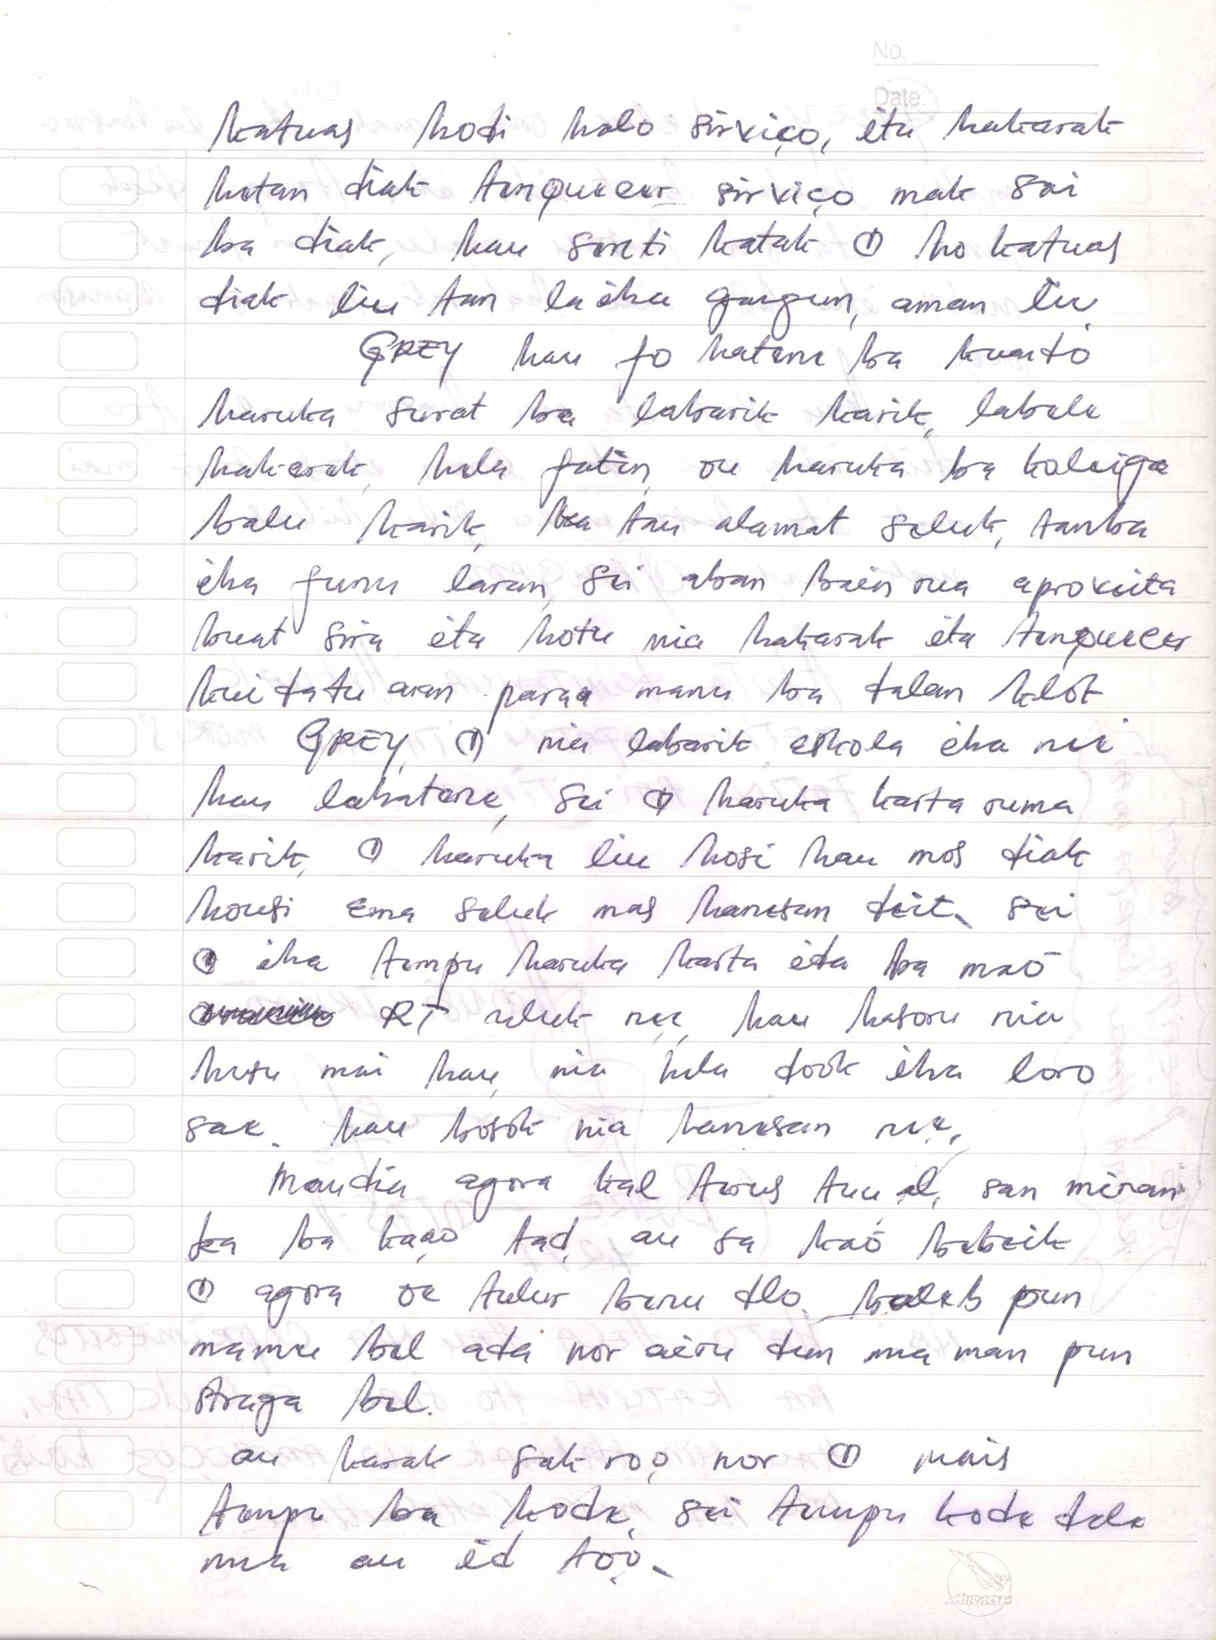 No.
Date.
katuas hodi halo sirviço, ita hakarak
hetan diak tenquecer sirviço mak sai
ba diak, hau senti katak ① ho katuas
diak liu tan la iha gangun, aman liu
GREY hau fo hatene ba kuando
haruka surat ba labarik karik, labele
hakerek, hela fatin, ou haruka ba koleiga
balu karik, ba tau alamat seluk, tanba
iha funu laran, sei aban bain rua aproveita
buat sira ita hotu nia hakarak ita tenquecer
kuidatu aran para manu ba dalan klot
GREY, ① nia labarik eskola iha ne'e
hau lahatene, sei ① haruka karta ruma
karik, ① haruka liu hosi hau mos diak
housi ema seluk mas hanesan deit, sei
① iha tempu haruka karta ida ba maõ
RT seluk ne'e, hau hasoru nia
husu mai hau, nia hela dook iha loro
sae. hau bosok nia hanesan ne'e,
Maudia agora kal terus
ba kaço tad, au sa kaõ bebeik
① agora oe tulur beru dlo. pun
mamu bel ada nor aeru dun ma man pun
straga bel.
au karak sak roo nor ① mais
tempu ba hode, sei tempu hode dele
mua au ed too.